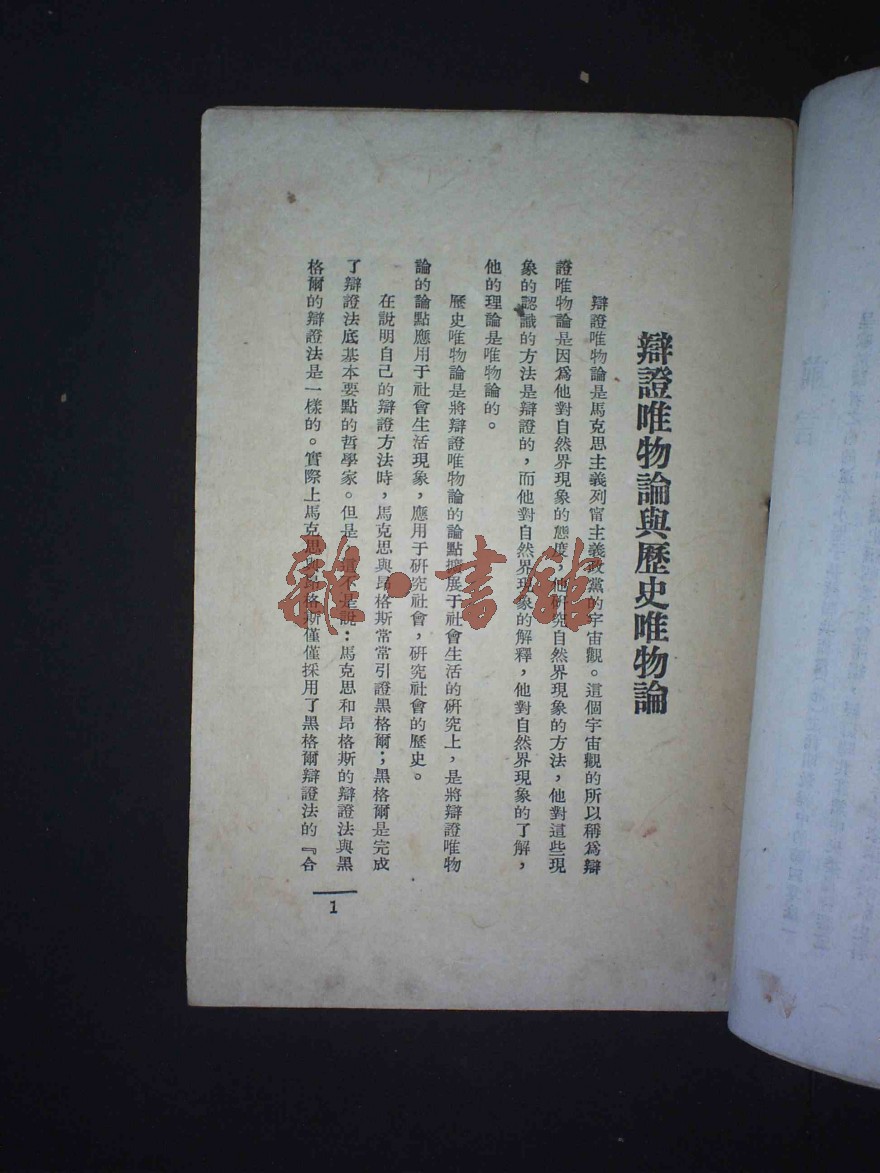 辯證唯物論與歷史唯物論
辯證唯物論是馬克思主義列甯主義政黨的宇宙觀。這個宇宙觀的所以稱爲辯
證唯物論是因爲他對自然界現象的態度，他研究自然界現象的方法，他對這些現
象的認識的方法是辯證的，而他對自然界現象的解釋，他對自然界現象的了解，
他的理論是唯物論的。
歷史唯物論是將辯證唯物論的論點擴展于社會生活的研究上，是將辯證唯物
論的論點應用于社會生活現象，應用于研究社會，研究社會的歷史。
在說明自己的辯證方法時，馬克思與昂格斯常常引證黑格爾；黑格爾是完成
了辯證法底基本要點的哲學家。但是，這不是說：馬克思和昂格斯的辯證法與黑
格爾的辯證法是一樣的。實際上馬克思與昂格斯僅僅採用了黑格爾辯證法的『合
1
雜·書館
前言